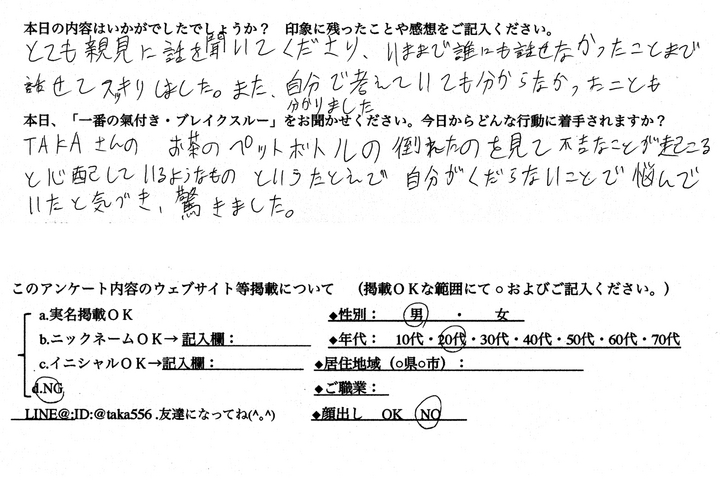 本日の内容はいかがでしたでしょうか？　印象に残ったことや感想をご記入ください。
とても親見に話を聞いてくださり、いままで誰にも話せなかったことまで
話せてスッキリしました。また、自分で考えていても分からなかったことも
分かりました
本日、「一番の氣付き・ブレイクスルー」をお聞かせください。今日からどんな行動に着手されますか？
TAKAさんの　お茶のペットボトルの倒れたのを見て不吉なことが起こる
と心配しているようなものというたとえで自分がくだらないことで悩んで
いたと気づき、驚きました。
このアンケート内容のウェブサイト等掲載について　（掲載ＯＫな範囲にて○およびご記入ください。）
a.実名掲載ＯＫ　◆性別：　男　・　女
b.ニックネームＯＫ→ 記入欄：　◆年代：　10代・20代・30代・40代・50代・60代・70代
c.イニシャルＯＫ→記入欄：　◆居住地域（○県○市）：
d.NG　◆ご職業：
LINE@;ID:@taka556 .友達になってね(^｡^)　◆顔出し　OK　NO